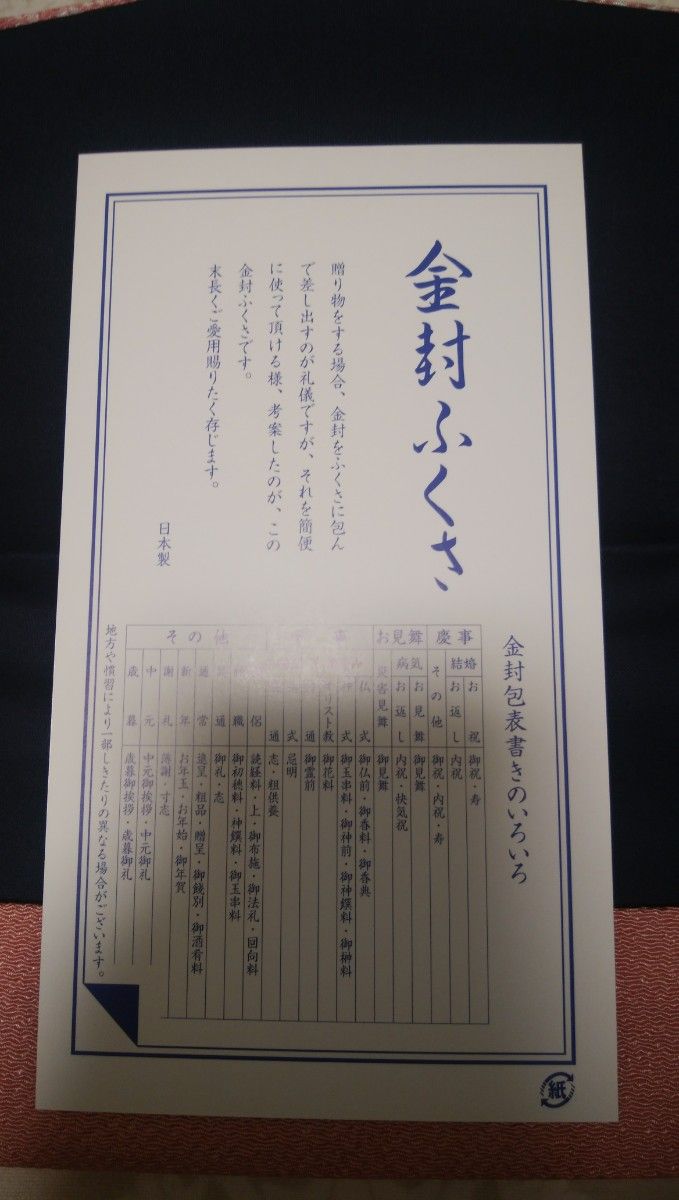 金封ふくさ
贈り物をする場合、金封をふくさに包ん
で差し出すのが礼儀ですが、それを簡便
に使って頂ける様、考案したのが、この
金封ふくさです。
末長くご愛用賜りたく存じます。
日本製
金封包表書きのいろいろ
慶事
結婚
お祝
御祝・寿
お返し
内祝
その他
御祝・内祝・寿
お見舞
病気
お見舞
御見舞
お返し
内祝・快気祝
災害見舞
御見舞
事
仏式
御仏前・御香料・御香典
式
御玉串料・御神前・御神饌料・御榊料
リスト教
御花料
通
御霊前
式
忌明
通
志・粗供養
その他
僧侶
読経料・上・御布施・御法礼・回向料
神職
御初穂料・神饌料・御玉串料
通
御礼・志
通常
進呈・粗品・贈呈・御餞別・御酒肴料
新年
お年玉・お年始・御年賀
謝礼
薄謝・寸志
中元
中元御挨拶・中元御礼
歳暮
歳暮御挨拶・歳暮御礼
地方や慣習により一部しきたりの異なる場合がございます。
紙